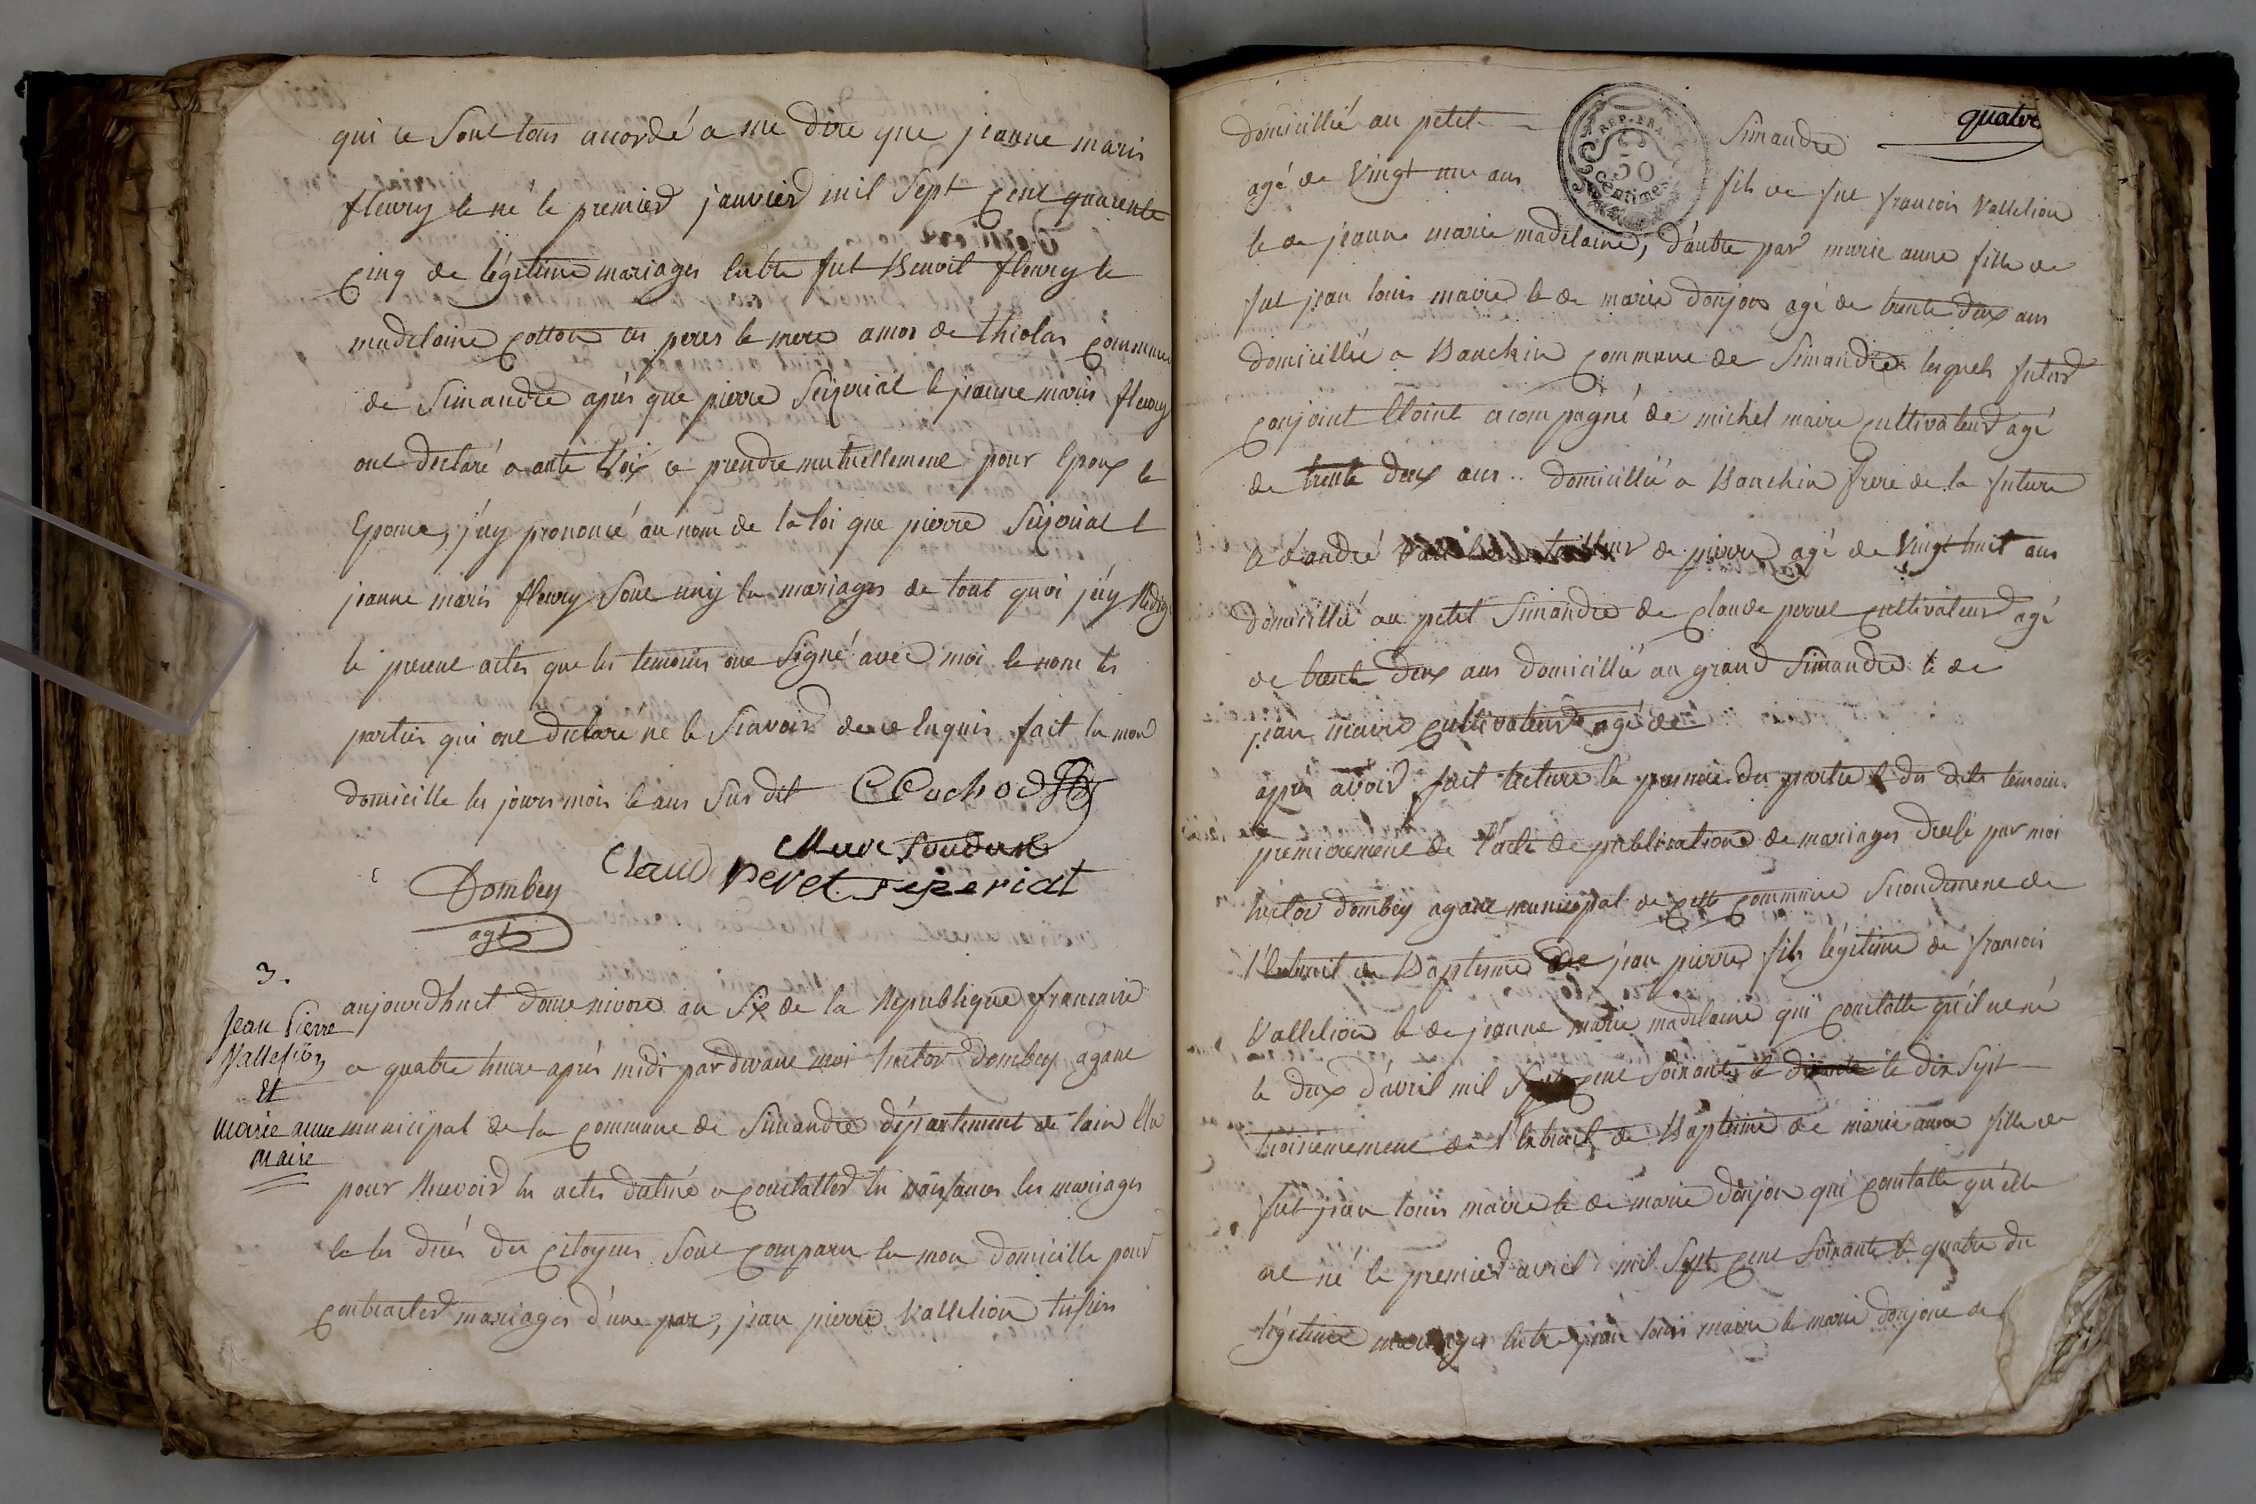 qui ce sont tous accordé a me dire que jeanne marie
fleury le né le premier janvier mil sept cent quarente
cinq de légitime mariages entre fut Benoit fleury le
madelaine cotton ses peres le mere amos de thiolas commune
de Simandre après que pierre Sizeriat le jeanne marie fleury
ont déclaré a aute voix ce prendre mutuellement pour Epoux le
Epouse, j'ay prononcé au nom de la loi que pierre Sizeriat l
jeanne marie fleury sont uniy en mariages de tout quoi j'ay Redige
le present actes que les temoins ont signé avec moi le nom les
parties qui ont declaré ne le scavoir de ce enquis fait en mon
domicille les jours mois le ans sus dit CCochod
Claud pevet sizeriat
Dombey
agt
3.
Jean Pierre
Vallelion
et
Marie anne
Maire
aujourdhuit douse nivose an six de la Republique francaise
a quatre heure après midi par devant moi hector Dombey agant
municipal de la commune de Simandre département de lain Elu
pour Recevoir les actes destiné a constatter les naissances les mariages
le les decés des citoyens sont comparu en mon domicille pour
contracter mariages d'une part, jean pierre Vallelion tissier
quatre
REP. FRA.
50
centimes
domicillié au petit Simandre
agé de vingt une ans fils de fut francois Vallelion
le de jeanne marie madelaine, d'autre part marie anne fille de
fut jean louis maire le de marie donjon agé de trente deux ans
domicillié a Banchin commune de Simandre lesquels futur
conjoint Etoint acompagné de michel maire cultivateur agé
de trente deux ans .. domicillié a Banchin frere de la future
d'andré tailleur de pierre agé de vingt huit ans
domicillié au petit Simandre de claude pevet cultivateur agé
de trente deux ans domicillié au grand Simandre le de
jean maire cultivateur agé de
après avoir fait lecture en presence des parties le des dits temoins
premierement de l'acte de publications de mariages dressé par moi
hector dombey agant municipal de cette commune secondement de
l'Extrait de Baptesme de jean pierre fils légitime de francois
Vallelion le de jeanne marie madelaine qui constatte qu'il est né
le deux d'avril mil sept cent soixante le dix sept
troisiemement de l'Extrait de Baptesme de marie anne fille de
fut jean louis maire le de marie donjon qui constatte qu'elle
est né le premier avril mil sept cent soixante le quatre du
légitime mariages entre jean louis maire le marie donjon